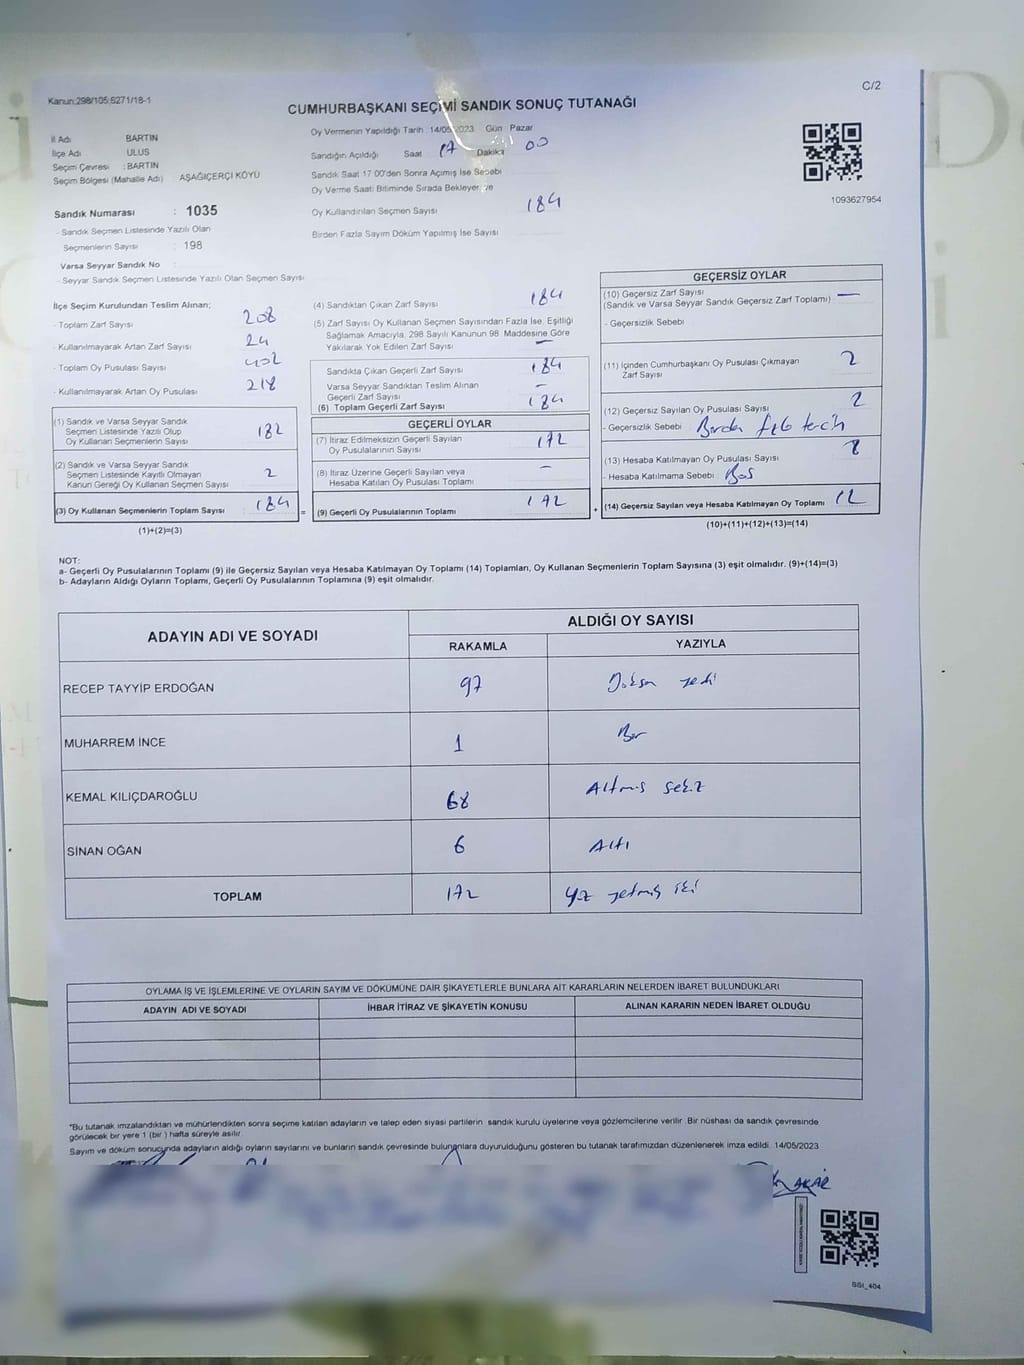 C/2
Kanun:298/105;6271/18-1
CUMHURBAŞKANI SEÇİMİ SANDIK SONUÇ TUTANAĞI
İl Adı BARTIN
İlçe Adı ULUS
Seçim Çevresi : BARTIN
Seçim Bölgesi (Mahalle Adı) AŞAĞIÇERÇİ KÖYÜ
Sandık Numarası : 1035
- Sandık Seçmen Listesinde Yazılı Olan
Seçmenlerin Sayısı : 198
Varsa Seyyar Sandık No
- Seyyar Sandık Seçmen Listesinde Yazılı Olan Seçmen Sayısı
Oy Vermenin Yapıldığı Tarih 14/05/2023 Gün Pazar
Sandığın Açıldığı Saat 17 Dakika 00
Sandık Saat 17 00'den Sonra Açılmış İse Sebebi
Oy Verme Saati Bitiminde Sırada Bekleyen ve
Oy Kullandırılan Seçmen Sayısı 184
Birden Fazla Sayım Döküm Yapılmış İse Sayısı
1093627954
İlçe Seçim Kurulundan Teslim Alınan;
- Toplam Zarf Sayısı 208
- Kullanılmayarak Artan Zarf Sayısı 24
- Toplam Oy Pusulası Sayısı 402
- Kullanılmayarak Artan Oy Pusulası 218
(1) Sandık ve Varsa Seyyar Sandık
Seçmen Listesinde Yazılı Olup
Oy Kullanan Seçmenlerin Sayısı 182
(2) Sandık ve Varsa Seyyar Sandık
Seçmen Listesinde Kayıtlı Olmayan
Kanun Gereği Oy Kullanan Seçmen Sayısı 2
(3) Oy Kullanan Seçmenlerin Toplam Sayısı 184 =
(1)+(2)=(3)
(4) Sandıktan Çıkan Zarf Sayısı 184
(5) Zarf Sayısı Oy Kullanan Seçmen Sayısından Fazla İse, Eşitliği
Sağlamak Amacıyla, 298 Sayılı Kanunun 98. Maddesine Göre
Yakılarak Yok Edilen Zarf Sayısı —
Sandıkta Çıkan Geçerli Zarf Sayısı 184
Varsa Seyyar Sandıktan Teslim Alınan
Geçerli Zarf Sayısı —
(6) Toplam Geçerli Zarf Sayısı 184
GEÇERLİ OYLAR
(7) İtiraz Edilmeksizin Geçerli Sayılan
Oy Pusulalarının Sayısı 172
(8) İtiraz Üzerine Geçerli Sayılan veya
Hesaba Katılan Oy Pusulası Toplamı —
(9) Geçerli Oy Pusulalarının Toplamı 172 +
GEÇERSİZ OYLAR
(10) Geçersiz Zarf Sayısı —
(Sandık ve Varsa Seyyar Sandık Geçersiz Zarf Toplamı)
- Geçersizlik Sebebi
(11) İçinden Cumhurbaşkanı Oy Pusulası Çıkmayan
Zarf Sayısı 2
(12) Geçersiz Sayılan Oy Pusulası Sayısı 2
- Geçersizlik Sebebi
(13) Hesaba Katılmayan Oy Pusulası Sayısı 8
- Hesaba Katılmama Sebebi Boş
(14) Geçersiz Sayılan veya Hesaba Katılmayan Oy Toplamı 12
(10)+(11)+(12)+(13)=(14)
NOT:
a- Geçerli Oy Pusulalarının Toplamı (9) ile Geçersiz Sayılan veya Hesaba Katılmayan Oy Toplamı (14) Toplamları, Oy Kullanan Seçmenlerin Toplam Sayısına (3) eşit olmalıdır. (9)+(14)=(3)
b- Adayların Aldığı Oyların Toplamı, Geçerli Oy Pusulalarının Toplamına (9) eşit olmalıdır.
ADAYIN ADI VE SOYADI
ALDIĞI OY SAYISI
RAKAMLA YAZIYLA
RECEP TAYYİP ERDOĞAN 97 Doksan yedi
MUHARREM İNCE 1 Bir
KEMAL KILIÇDAROĞLU 68 Altmış sekiz
SİNAN OĞAN 6 Altı
TOPLAM 172 yüz yetmiş iki
OYLAMA İŞ VE İŞLEMLERİNE VE OYLARIN SAYIM VE DÖKÜMÜNE DAİR ŞİKAYETLERLE BUNLARA AİT KARARLARIN NELERDEN İBARET BULUNDUKLARI
ADAYIN ADI VE SOYADI İHBAR İTİRAZ VE ŞİKAYETİN KONUSU ALINAN KARARIN NEDEN İBARET OLDUĞU
*Bu tutanak imzalandıktan ve mühürlendikten sonra seçime katılan adayların ve talep eden siyasi partilerin sandık kurulu üyelerine veya gözlemcilerine verilir. Bir nüshası da sandık çevresinde
görülecek bir yere 1 (bir ) hafta süreyle asılır.
Sayım ve döküm sonucunda adayların aldığı oyların sayılarını ve bunların sandık çevresinde bulunanlara duyurulduğunu gösteren bu tutanak tarafımızdan düzenlenerek imza edildi. 14/05/2023
AKAR
SSI_404